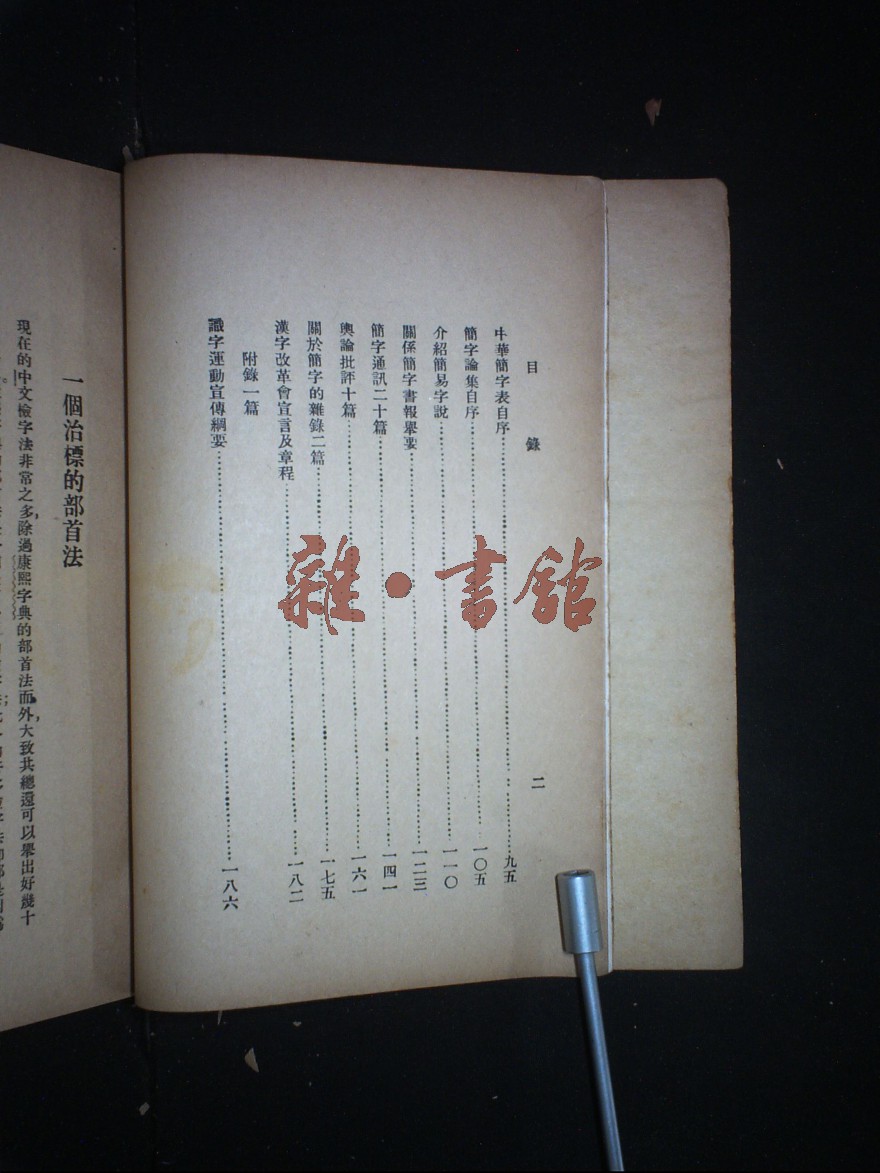 目錄 二
中華簡字表自序 九五
簡字論集自序 一〇五
介紹簡易字說 一一〇
關係簡字書報舉要 一二三
簡字通訊二十篇 一四一
輿論批評十篇 一六一
關於簡字的雜錄二篇 一七五
漢字改革會宣言及章程 一八二
附錄一篇
識字運動宣傳綱要 一八六
雜·書館
一個治標的部首法
現在的中文檢字法非常之多，除過康熙字典的部首法而外，大致共總還可以舉出好幾十